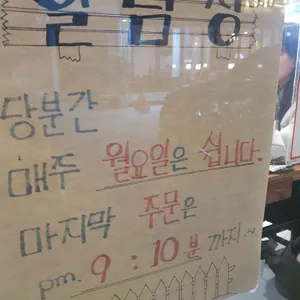 당분간
매주 월요일은 쉽니다.
마지막 주문은
pm. 9 : 10분 까지~